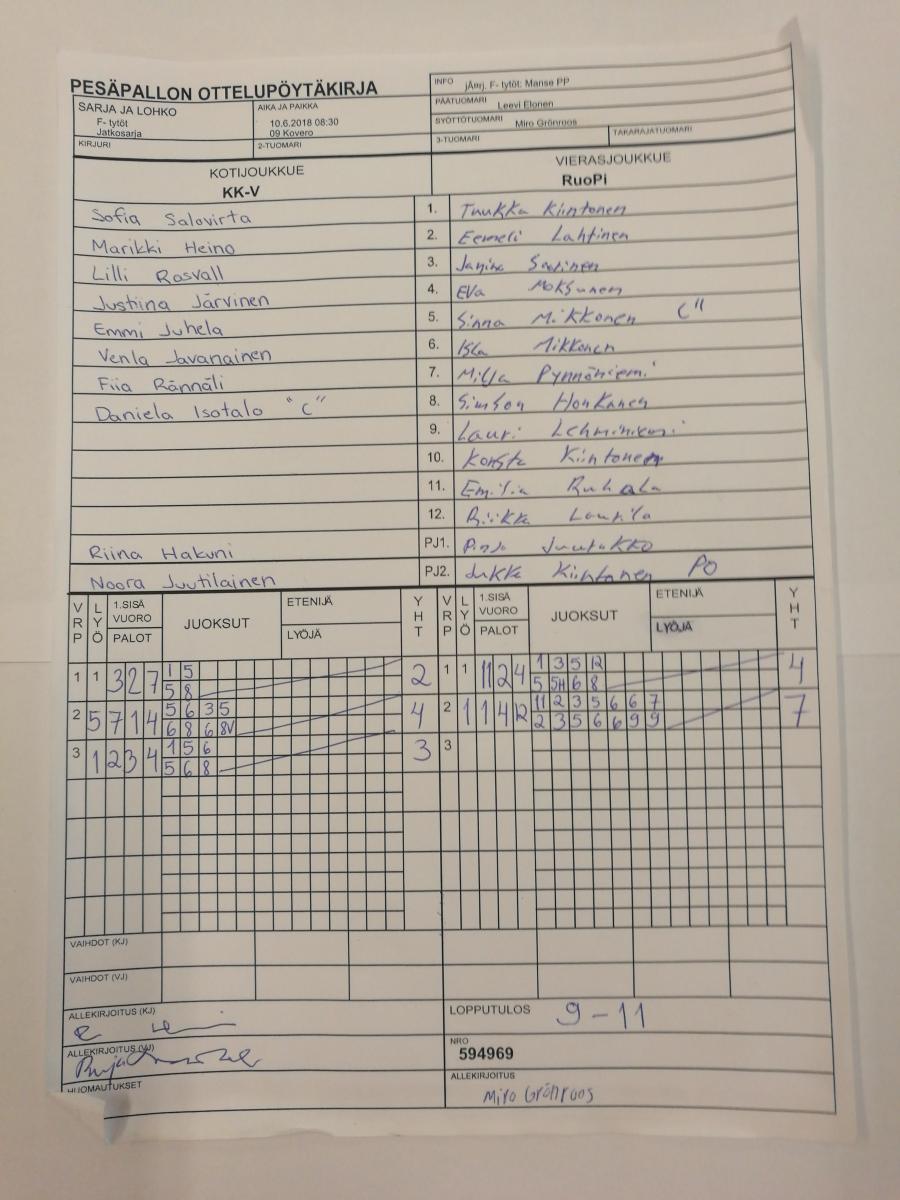 PESÄPALLON OTTELUPÖYTÄKIRJA
INFO jÄrrj. F- tytöt: Manse PP
SARJA JA LOHKO
F- tytöt
Jatkosarja
AIKA JA PAIKKA
10.6.2018 08:30
09 Kovero
PÄÄTUOMARI Leevi Elonen
SYÖTTÖTUOMARI Miro Grönroos
KIRJURI
2-TUOMARI
3-TUOMARI
TAKARAJATUOMARI
KOTIJOUKKUE
KK-V
VIERASJOUKKUE
RuoPi
Sofia Salovirta 1. Tuukka Kiintonen
Marikki Heino 2. Eemeli Lahtinen
Lilli Rosvall 3. Janina
Justiina Järvinen 4. Eva Moksunen
Emmi Juhela 5. Sinna Mikkonen C"
Venla Javanainen 6. Isla Mikkonen
Fiia Rännäli 7. Milja Pynnöniemi
Daniela Isotalo "C" 8. Simson Honkanen
9. Lauri Lehminiemi
10. Konsta Kiintonen
11. Emilia Ruhala
12. Riikka Laurila
Riina Hakuni PJ1.
Noora Juutilainen PJ2. Jukka Kiintonen PO
VRP LYÖ 1.SISÄ VUORO PALOT JUOKSUT ETENIJÄ LYÖJÄ YHT VRP LYÖ 1.SISÄ VUORO PALOT JUOKSUT ETENIJÄ LYÖJÄ YHT
1 1 3 2 7 1 5 2 1 1 11 2 4 1 3 5 12 4
5 8 5 5H 6 8
2 5 7 1 4 5 6 3 5 4 2 1 1 4 12 11 2 3 5 6 6 7 7
6 8 6 8V 2 3 5 6 6 9 9
3 1 2 3 4 1 5 6 3 3
5 6 8
VAIHDOT (KJ)
VAIHDOT (VJ)
ALLEKIRJOITUS (KJ)
LOPPUTULOS 9-11
ALLEKIRJOITUS (VJ)
NRO
594969
HUOMAUTUKSET
ALLEKIRJOITUS
Miro Grönroos